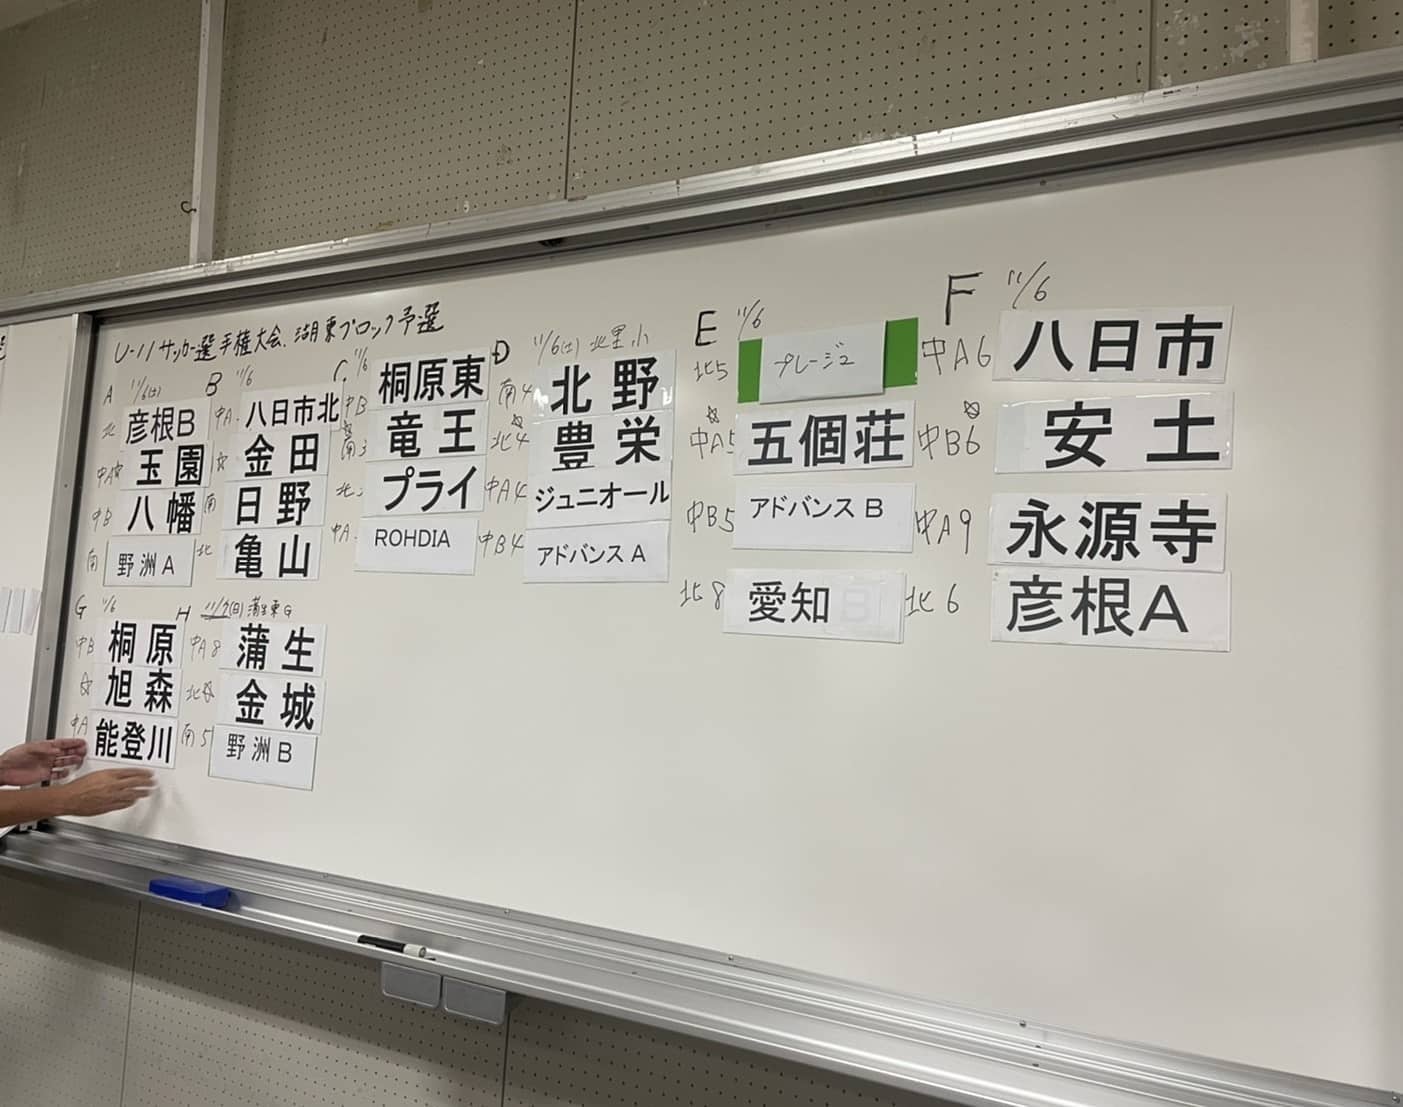 U-11 サッカー選手権大会、湖東ブロック予選
A 11/6(土)
北 彦根B
中A☆ 玉園
中B 八幡
南 野洲A
B 11/6
中A. 八日市北
☆ 金田
南 日野
北 亀山
C 11/6
中B 桐原東
☆南3 竜王
北 プライ
中A. ROHDIA
D 11/6(土) 北里小
南4 北野
北4☆ 豊栄
中A4 ジュニオール
中B4 アドバンスA
E 11/6
北5 プレージユ
中A5☆ 五個荘
中B5 アドバンスB
北8 愛知
F 11/6
中A6 八日市
中B6☆ 安土
中A9 永源寺
北6 彦根A
G 11/6
中B 桐原
☆ 旭森
中A 能登川
H 11/7(日) 蒲生東G
中A8 蒲生
北☆ 金城
南5 野洲B